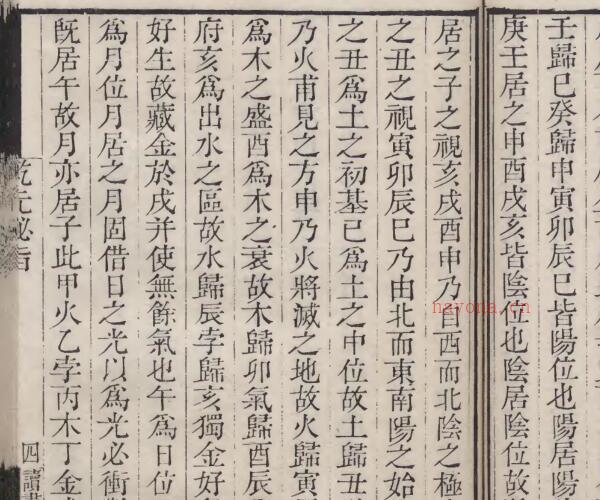 壬歸巳癸歸申寅卯辰巳皆陽位也陽居陽
庚壬居之申酉戌亥皆陰位也陰居陰位故
居之子之視亥戌酉申乃自西而北陰之極
之丑之視寅卯辰巳乃由北而東南陽之始
之丑爲土之初基巳爲土之中位故土歸丑
乃火甫見之方申乃火將滅之地故火歸寅
爲木之盛酉爲木之衰故木歸卯氣歸酉辰
府亥爲出水之區故水歸辰孛歸亥獨金好
好生故藏金於戌并使無餘氣也午爲日位
爲月位月居之月固借日之光以爲光必衝
旣居午故月亦居子此甲火乙孛丙木丁金
乾元秘旨
四
nayona.cn